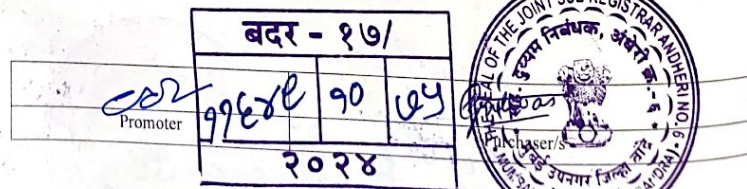 बदर - १७/
११६४९ १० ७५
Promoter
Purchaser/s
२०२४
SEAL OF THE JOINT SUB REGISTRAR ANDHERI NO. 6
सह. दुय्यम निबंधक, अंधेरी क्र. - ६
मुंबई उपनगर जिल्हा, बांद्रा